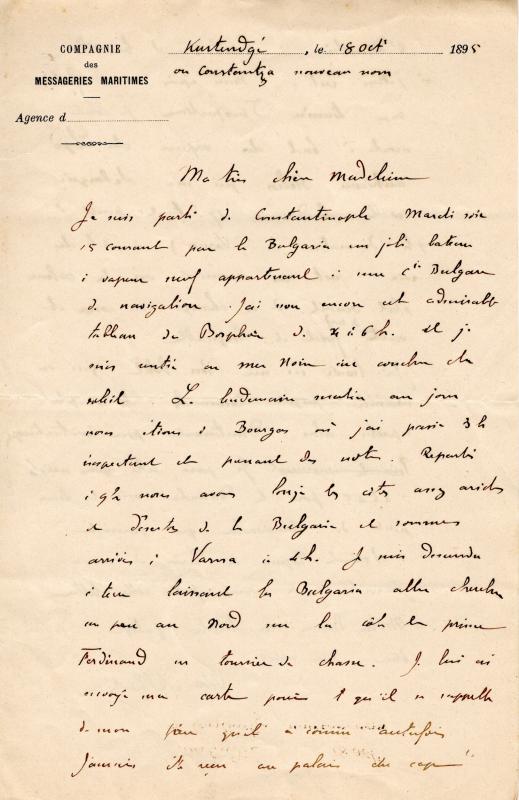 COMPAGNIE
des
MESSAGERIES MARITIMES
Agence d
Kustendgé, le 18 Oct 1895
ou Constantza nouveau nom
Ma très chère Madeleine
Je suis parti de Constantinople Mardi soir
15 courant par le Bulgaria un joli bateau
à vapeur neuf appartenant à une Cie Bulgare
de navigation. J'ai revu encore cet admirable
tableau du Bosphore de 4 à 6 h. et je
suis entré en mer Noire au coucher du
soleil. Le lendemain matin au jour
nous étions à Bourgas où j'ai passé 3 h
inspectant et prenant des notes. Reparti
à 9h nous avons longé les côtes assez arides
et désertes de la Bulgarie et sommes
arrivés à Varna à 4h. Je suis descendu
à terre laissant le Bulgaria aller chercher
un peu au Nord sur la côte le prince
Ferdinand en tournée de chasse. Je lui ai
envoyé ma carte pour qu'il se rappelle
de mon père qu'il a connu autrefois
J'aurais été reçu au palais du